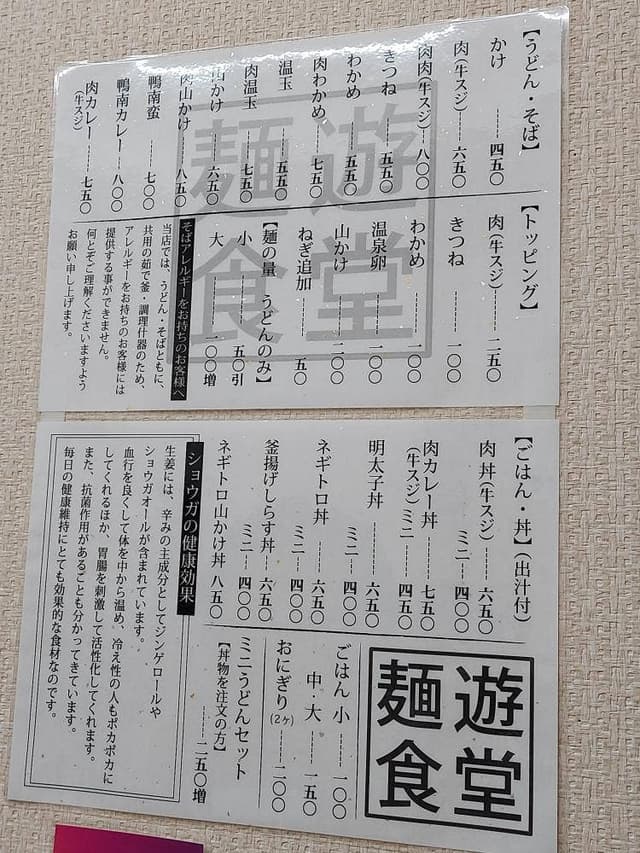 【うどん・そば】
かけ 四五〇
肉(牛スジ) 六五〇
肉肉(牛スジ) 八〇〇
きつね 五五〇
わかめ 五五〇
肉わかめ 七五〇
温玉 五五〇
肉温玉 七五〇
山かけ 六五〇
肉山かけ 八五〇
鴨南蛮 七〇〇
鴨南カレー 八〇〇
肉カレー 七五〇
(牛スジ)
【トッピング】
肉(牛スジ) 二五〇
きつね 一〇〇
わかめ 一〇〇
温泉卵 一〇〇
山かけ 二〇〇
ねぎ追加 五〇
【麺の量 うどんのみ】
小 五〇引
大 一〇〇増
そばアレルギーをお持ちのお客様へ
当店では、うどん・そばともに、
共用の茹で釜・調理什器のため、
アレルギーをお持ちのお客様には
提供する事ができません。
何とぞご理解くださいますよう
お願い申し上げます。
遊堂
麺食
【ごはん・丼】(出汁付)
肉丼(牛スジ) 六五〇
ミニ 四〇〇
肉カレー丼 七五〇
(牛スジ)ミニ 四五〇
明太子丼 六五〇
ミニ 四〇〇
ネギトロ丼 六五〇
ミニ 四〇〇
釜揚げしらす丼 六五〇
ミニ 四〇〇
ネギトロ山かけ丼 八五〇
遊堂
麺食
ごはん 小 一〇〇
中・大 一五〇
おにぎり(2ヶ) 二〇〇
ミニうどんセット
【丼物を注文の方】 二五〇増
ショウガの健康効果
生姜には、辛みの主成分としてジンゲロールや
ショウガオールが含まれています。
血行を良くして体を中から温め、冷え性の人もポカポカに
してくれるほか、胃腸を刺激して活性化してくれます。
また、抗菌作用があることも分かってきています。
毎日の健康維持にとても効果的な食材なのです。